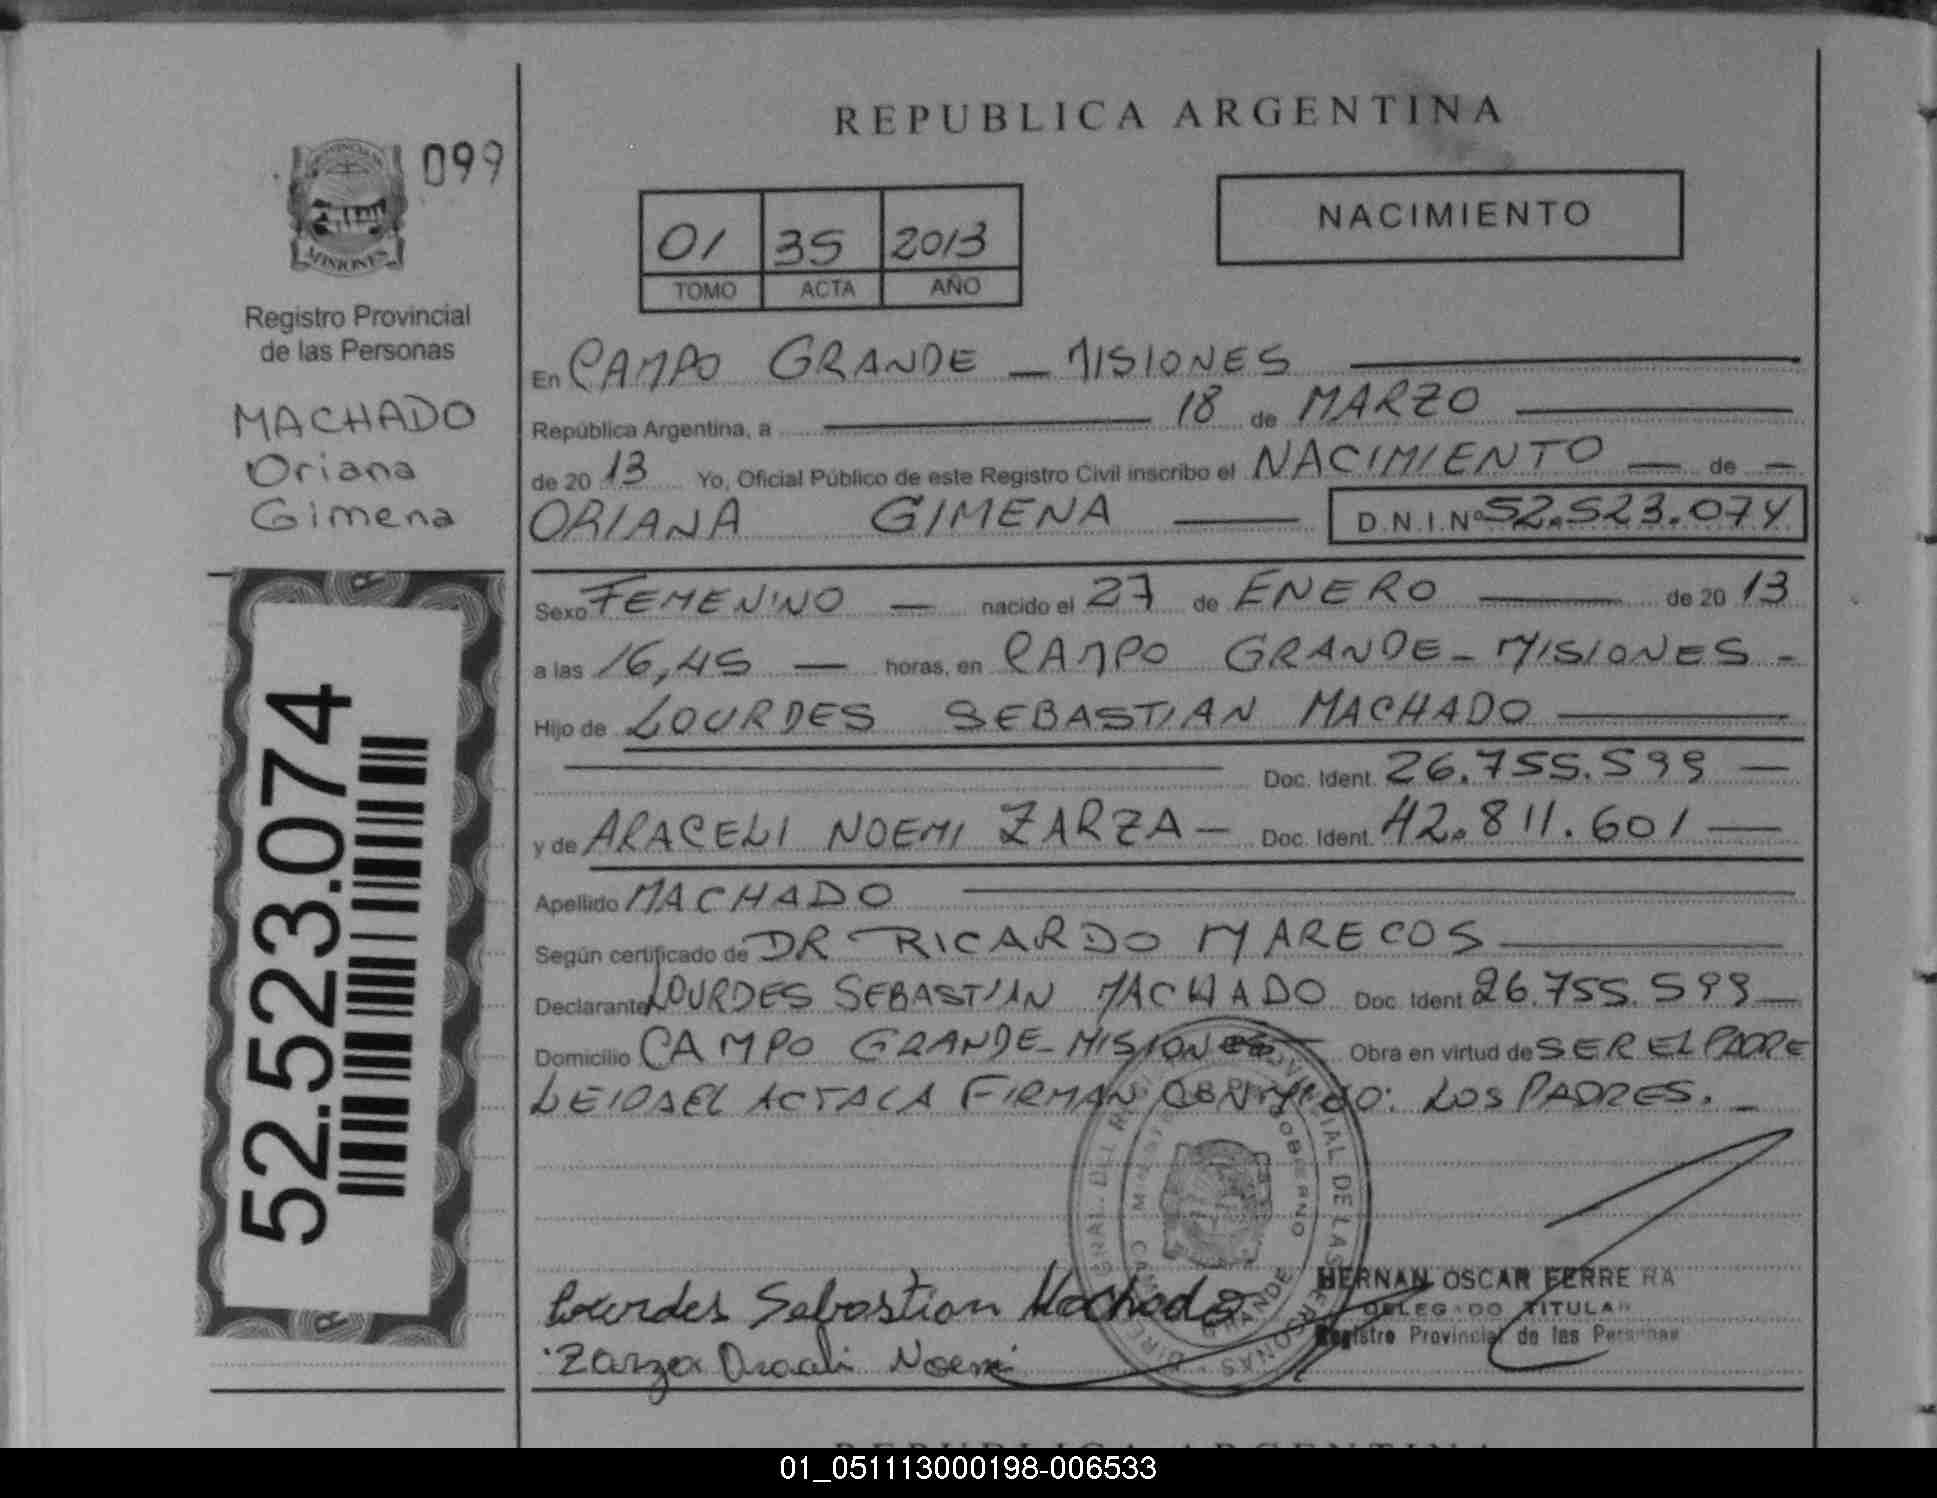 REPUBLICA ARGENTINA
099
PROVINCIA DE
MISIONES
Registro Provincial
de las Personas
MACHADO
Oriana
Gimena
52.523.074
01 35 2013
TOMO ACTA AÑO
NACIMIENTO
En CAMPO GRANDE - MISIONES
República Argentina, a 18 de MARZO
de 2013 Yo, Oficial Público de este Registro Civil inscribo el NACIMIENTO de
ORIANA GIMENA D.N.I. Nº 52.523.074
Sexo FEMENINO nacido el 27 de ENERO de 2013
a las 16,45 horas, en CAMPO GRANDE - MISIONES -
Hijo de LOURDES SEBASTIAN MACHADO
Doc. Ident. 26.755.599
y de ARACELI NOEMI ZARZA - Doc. Ident. 42.811.601
Apellido MACHADO
Según certificado de DR RICARDO MARECOS
Declarante LOURDES SEBASTIAN MACHADO Doc. Ident. 26.755.599
Domicilio CAMPO GRANDE - MISIONES Obra en virtud de SER EL PADRE
LEIDA EL ACTA LA FIRMAN CONMIGO: LOS PADRES. -
Lourdes Sebastian Machado
Zarza Araceli Noemi
HERNAN OSCAR FERREIRA
DELEGADO TITULAR
Registro Provincial de las Personas
REPUBLICA ARGENTINA
01_051113000198-006533